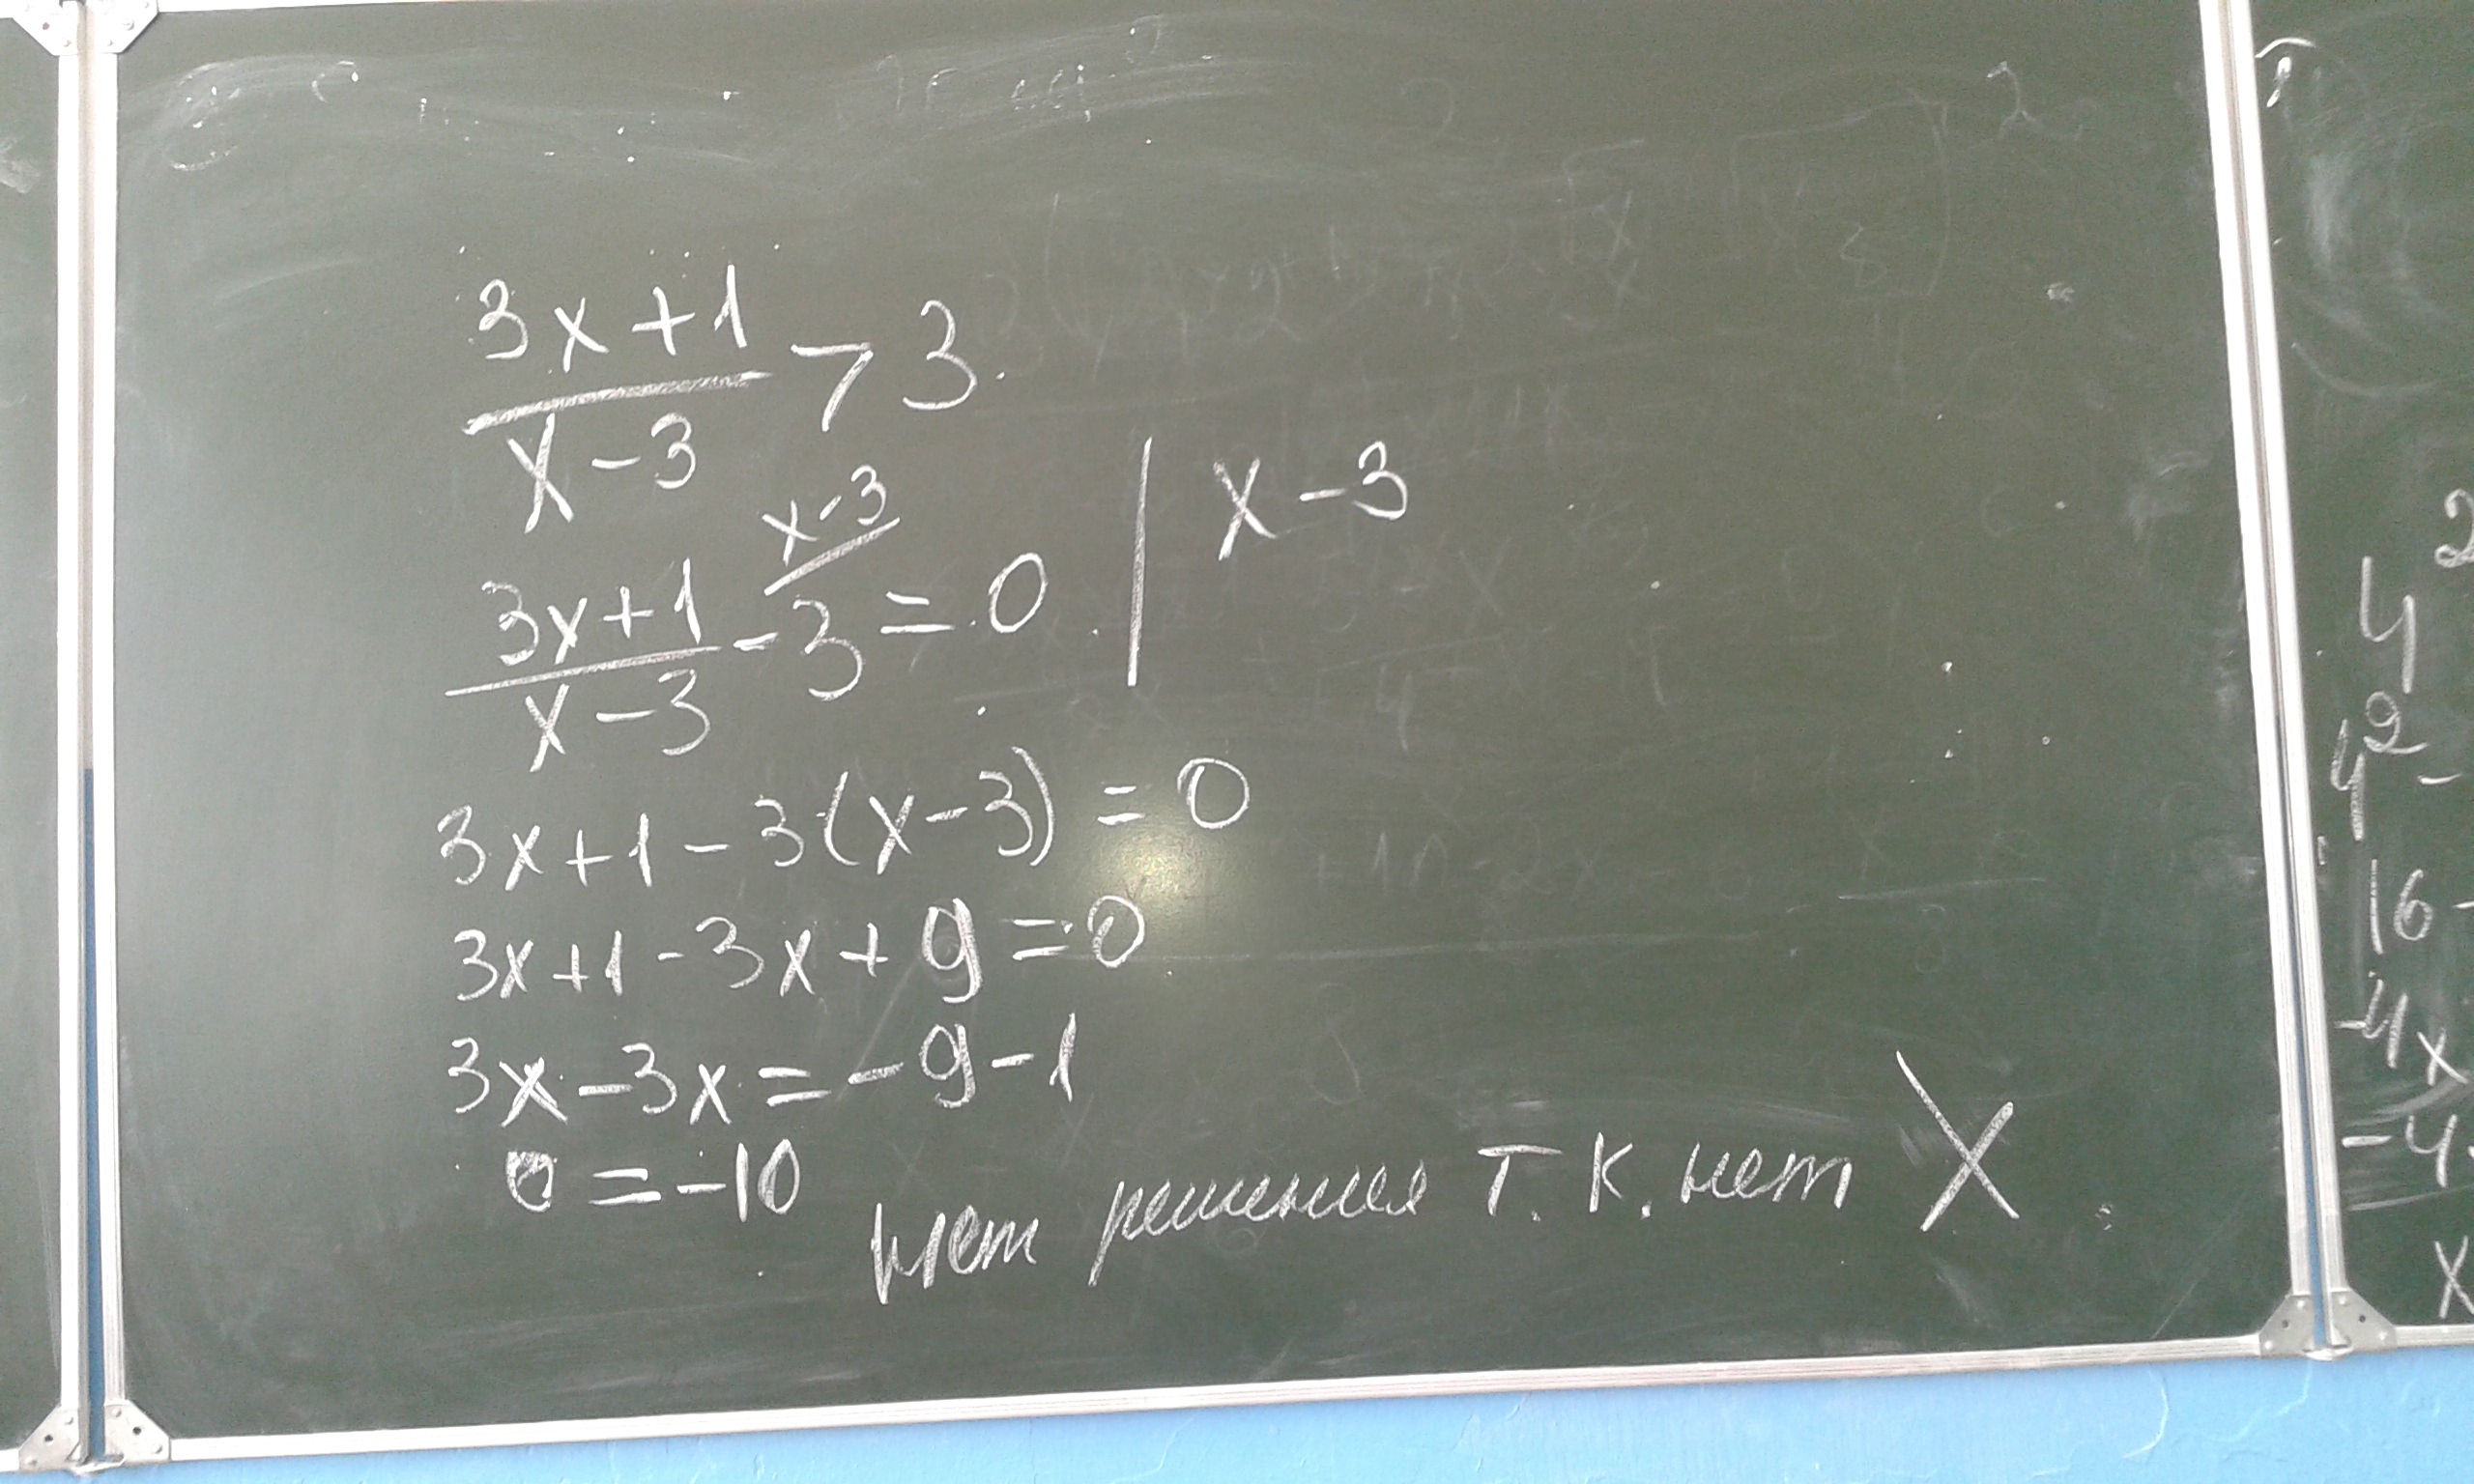 3x+1
x-3
>3
x-3
3x+1
x-3
-3=0 | x-3
3x+1-3(x-3)=0
3x+1-3x+9=0
3x-3x=-9-1
0=-10
Нет решения т.к. нет X
2
4
4²-
16-
-4x
-4
x